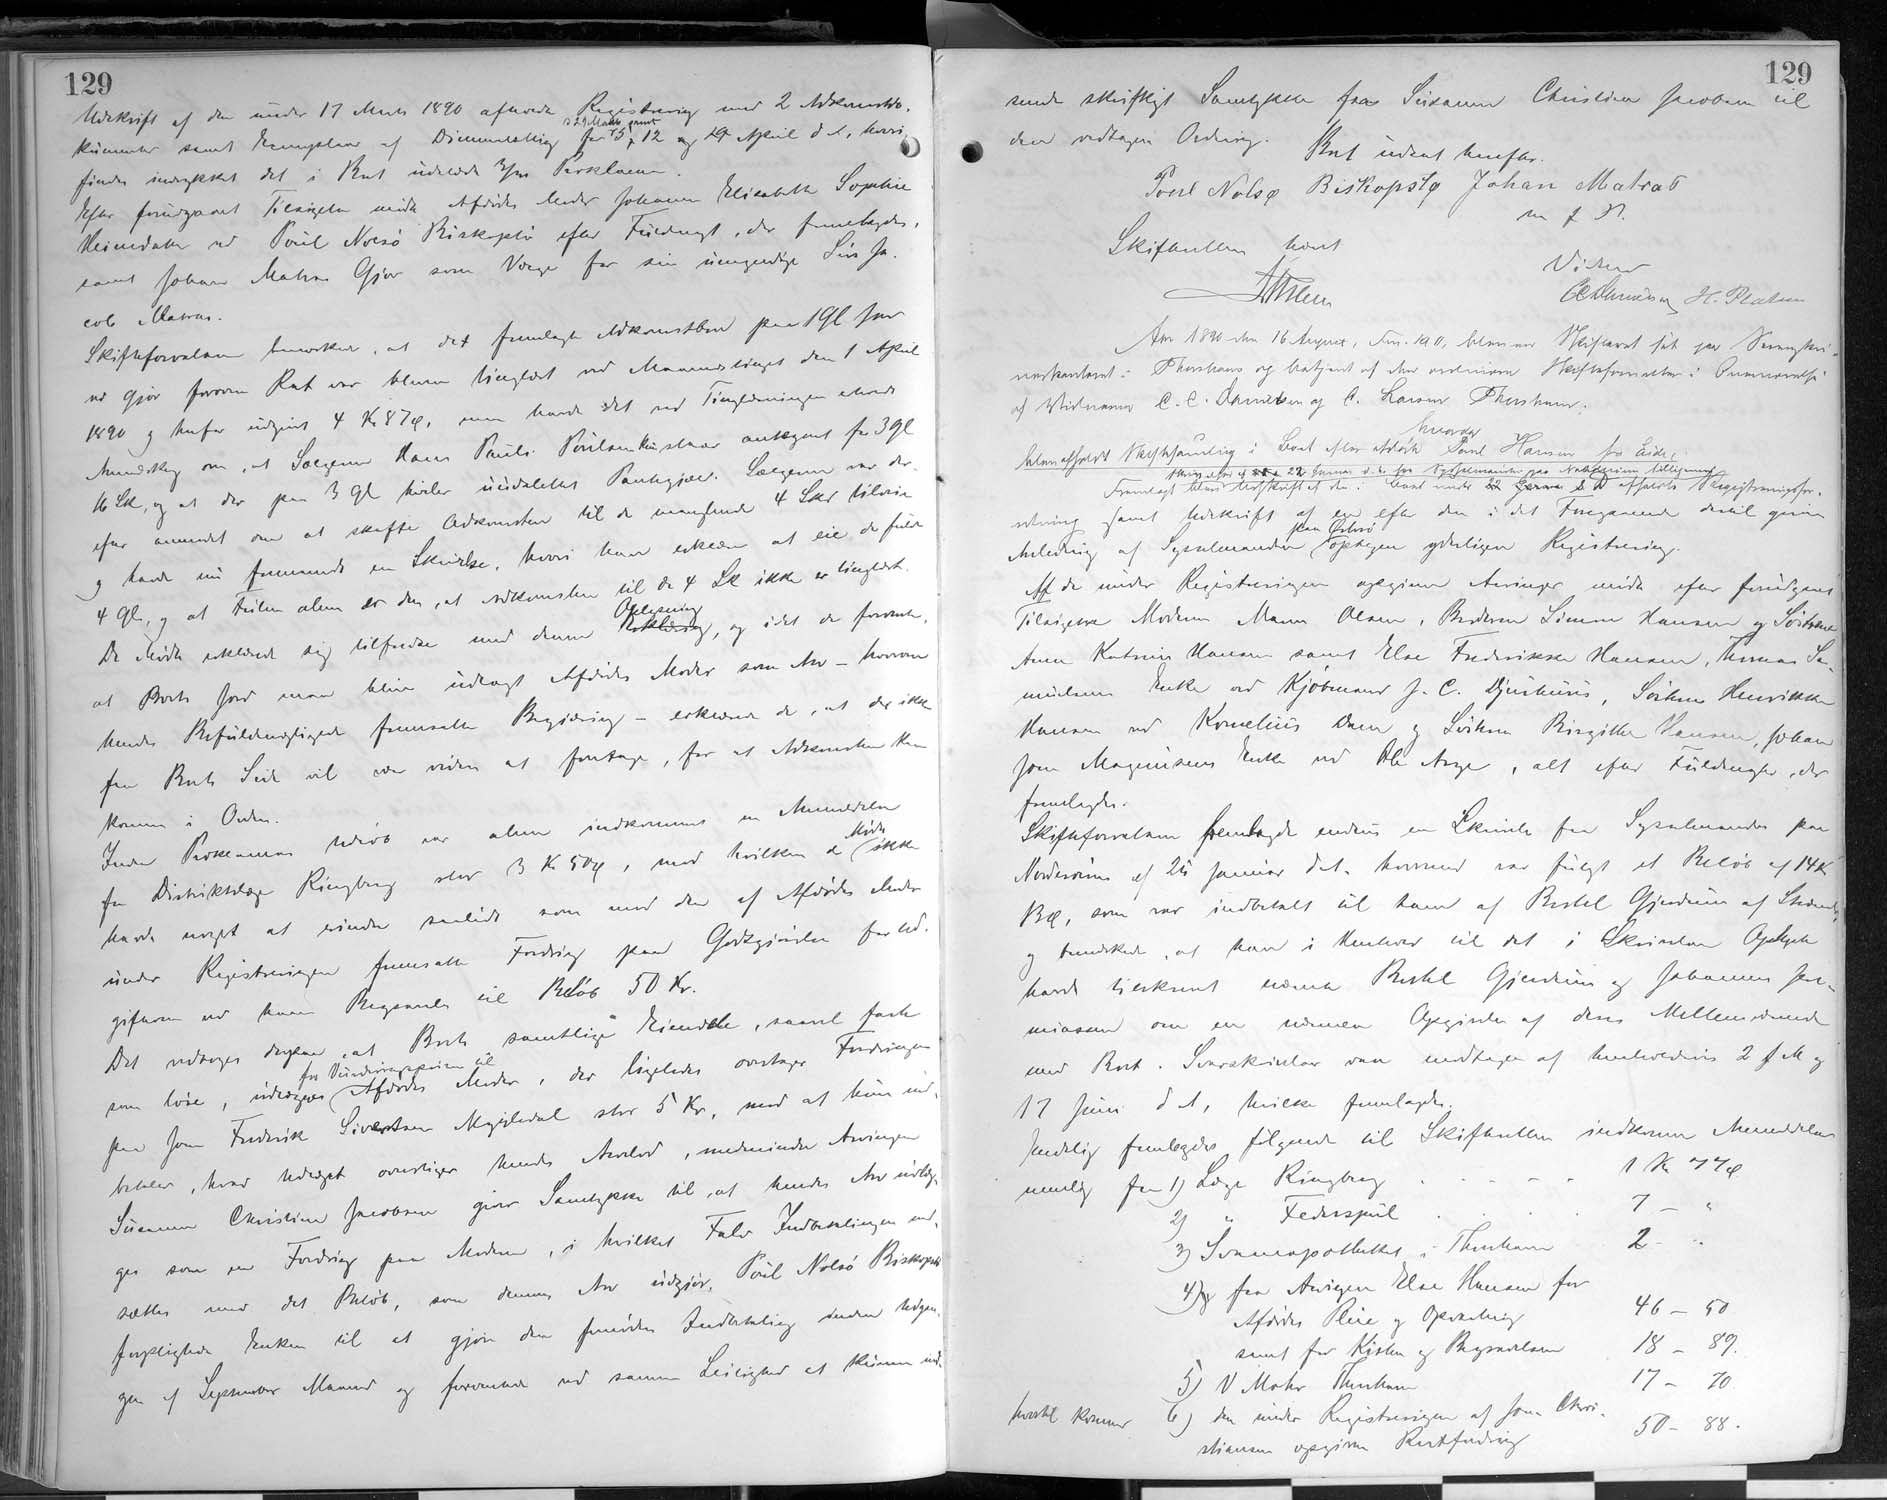 129
Udskrift af den under 17 Marts 1890 afholdte Registrering med 2 Adkomstdo-
kumenter samt Exemplar af Dimmalætting for
s 29 Marts samt
5, 12 og 19 April d A, hvori
findes indrykket det i Boet udstedte Proklama.
Efter forudgaaet Tilsigelse mødte Afdødes Moder Johanne Elisabeth Sophie
Heinesdatter ved Poul Nolsö Biskopstö efter Fuldmagt, der fremlagdes,
samt Johan Matras Gjov som Værge for sin umyndige Søn Ja-
cob Matras.
Skifteforvalteren bemærkede, at det fremlagte Adkomstbrev paa 1 Gl Jord
ved Gjov forinden Boet var bleven tinglæst ved Maanedstinget den 1 April
1890 og herfor udgivet 4 Kr 87 Ø, men havde det ved Tinglæsningen erholdt
Anmærkning om, at Sælgeren Hans Pauli Poulsen kun havde Adkomst for 3 Gl
16 Sk, og at der paa 3 Gl hviler uudslettet Pantegjæld. Sælgeren var der-
efter anmodet om at skaffe Adkomsten til de manglende 4 Skd tilveie
og havde nu fremsendt en Skrivelse, hvori han erklærer at eie de fulde
4 Gl, og at Feilen alene er den, at Adkomsten til de 4 Sk ikke er tinglæst.
De Mødte erklærede sig tilfredse med denne
Oplysning
Erklæring, og idet de forvente,
at Boets Jord maa blive udlagt Afdødes Moder som Arv – hvorom
hendes Befuldmægtigede fremsatte Begjæring – erklærede de, at der ikke
fra Boets Side vil være videre at foretage, for at Adkomsten kan
komme i Orden.
Inden Proklamas Udløb var alene indkommet en Anmeldelse
fra Distriktslæge Ringberg stor 3 Kr 50 Ø, mod hvilken de
Mødte
ikke
havde noget at erindre saalidt som mod den af Afdødes Moder
under Registreringen fremsatte Fordring paa Godtgjørelse for Ud-
gifterne ved hans Begravelse til Beløb 50 Kr.
Det vedtoges derpaa, at Boets samtlige Eiendele, saavel faste
som løse, udlægges
for Vurderingsprisen til
Afdødes Moder, der ligeledes overtager Fordringen
paa Joen Frederik Sivertsen Mygledal stor 5 Kr, mod at hun ind-
betaler, hvad Udlæget overstiger hendes Arvelod, medmindre Arvingen
Susanne Christine Jacobsen giver Samtykke til, at hendes Arv udlæg-
ges som en Fordring paa Moderen, i hvilket Fald Indbetalingen ned-
sættes med det Beløb, som dennes Arv udgjør. Poul Nolsö Biskopstö
forpligtede Enken til at gjøre den fornødne Indbetaling inden Udgan-
gen af September Maaned og forventede ved samme Leilighed at kunne ind-
129
sende skriftligt Samtykke fra Susanne Christine Jacobsen til
den vedtagne Ordning.
Boet udsat herefter.
Poul Nolsø Biskopstø Johan Matras
m f P.
Skifteretten hævet
Vidner
CC Danielsen H. Poulsen
Aar 1890 den 16 August, Em. Kl 0, blev en Skifteret sat paa Sorenskri-
verkontoret i Thorshavn og betjent af den ordinære Skifteforvalter i Overværelse
af Vidnerne C. C. Danielsen og C. Larsen Thorshavn,
hvorda
blev afholdt Skiftesamling i Boet efter afdøde Poul Hansen fra Eide,
Skrivelse af 22 Januar d. A. fra Sysselmanden paa Norderøerne tilligemed
Fremlagt blev Udskrift af den i Boet under 22 Januar d A afholdte Registreringsfor-
retning samt Udskrift af en efter den i det Foregaaende dertil givne
Anledning af Sysselmanden
paa Østerø
optagen yderligere Registrering.
Af de under Registreringen opgivne Arvinger mødte efter forudgaaet
Tilsigelse Moderen Maren Olesen, Broderen Simon Hansen og Søstrene
Anna Katrine Hansen samt Else Frederikke Hansen, Thomas Sa-
muelsens Enke ved Kjøbmand J. C. Djurhuus, Søsteren Henrikke
Hansen ved Kornelius Dam og Søsteren Birgitte Hansen, Johan
Joen Magnussens Enke ved Ole Arge, alt efter Fuldmagter, der
fremlagdes.
Skifteforvalteren fremlagde endnu en Skrivelse fra Sysselmanden paa
Norderøerne af 25 Januar d A. hvormed var fulgt et Beløb af 14 Kr
Ø, som var indbetalt til ham af Bertel Gjerdum af Strænder,
og bemærkede, at han i Henhold til det i Skrivelsen Oplyste
havde tilskrevet nævnte Bertel Gjerdum og Johannes Joe-
niassen om en nærmere Opgivelse af deres Mellemværende
med Boet. Svarskrivelser var modtagen af henholdsvis 2 d M og
17 Juni d A, hvilke fremlagdes.
Endelig fremlagdes følgende til Skifteretten indkomne Anmeldelser
nemlig fra 1) Læge Ringberg . . . . . 1 Kr 77 Ø
2) " Federspiel . . . . 7 – "
3) Svaneapotheket i Thorshavn 2 – "
4) fra Arvingen Else Hansen for
Afdødes Pleie og Opvartning 46 – 50
samt for Kisten og Begravelsen 18 – 89.
5) V Mohr Thorshavn 17 – 70
hvortil kommer 6) den under Registreringen af Joen Chri-
stiansen opgivne Restfordring 50 – 88.